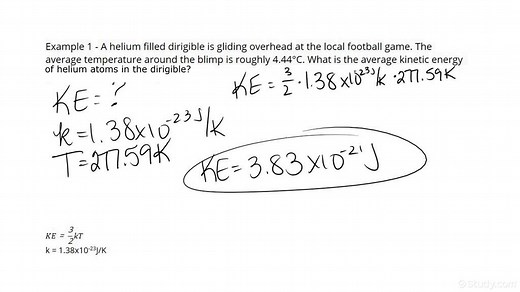 Example 1 - A helium filled dirigible is gliding overhead at the local football game. The
average temperature around the blimp is roughly 4.44°C. What is the average kinetic energy
of helium atoms in the dirigible?
KE = 3/2 · 1.38x10²³J/k · 277.59K
KE = ?
k = 1.38x10⁻²³J/K
T = 277.59K
KE = 3.83x10⁻²¹J
KE = 3/2kT
k = 1.38x10⁻²³J/K
Study.com